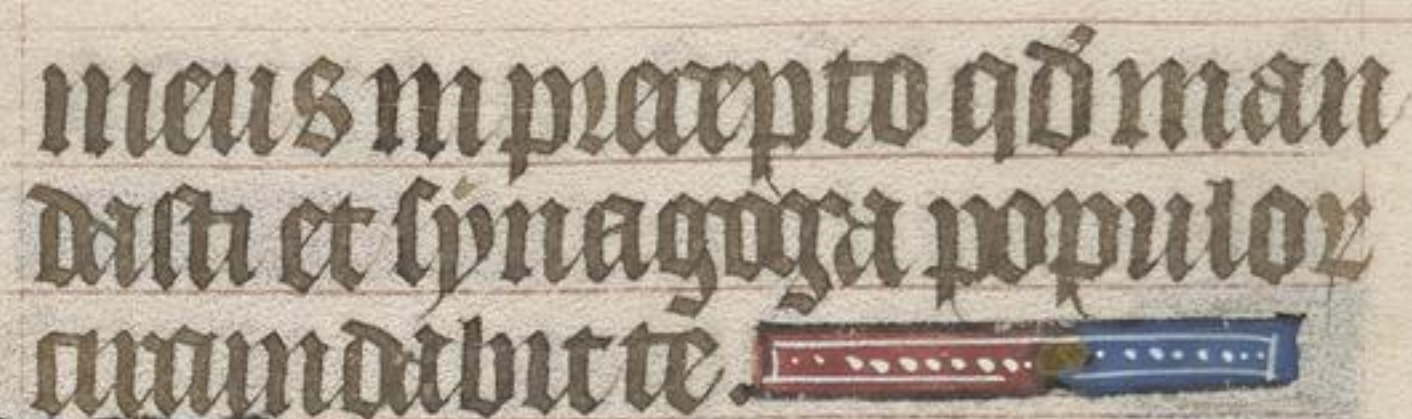 meus in precepto qđ man
dasti et synagoga populoꝝ
circundabit te.